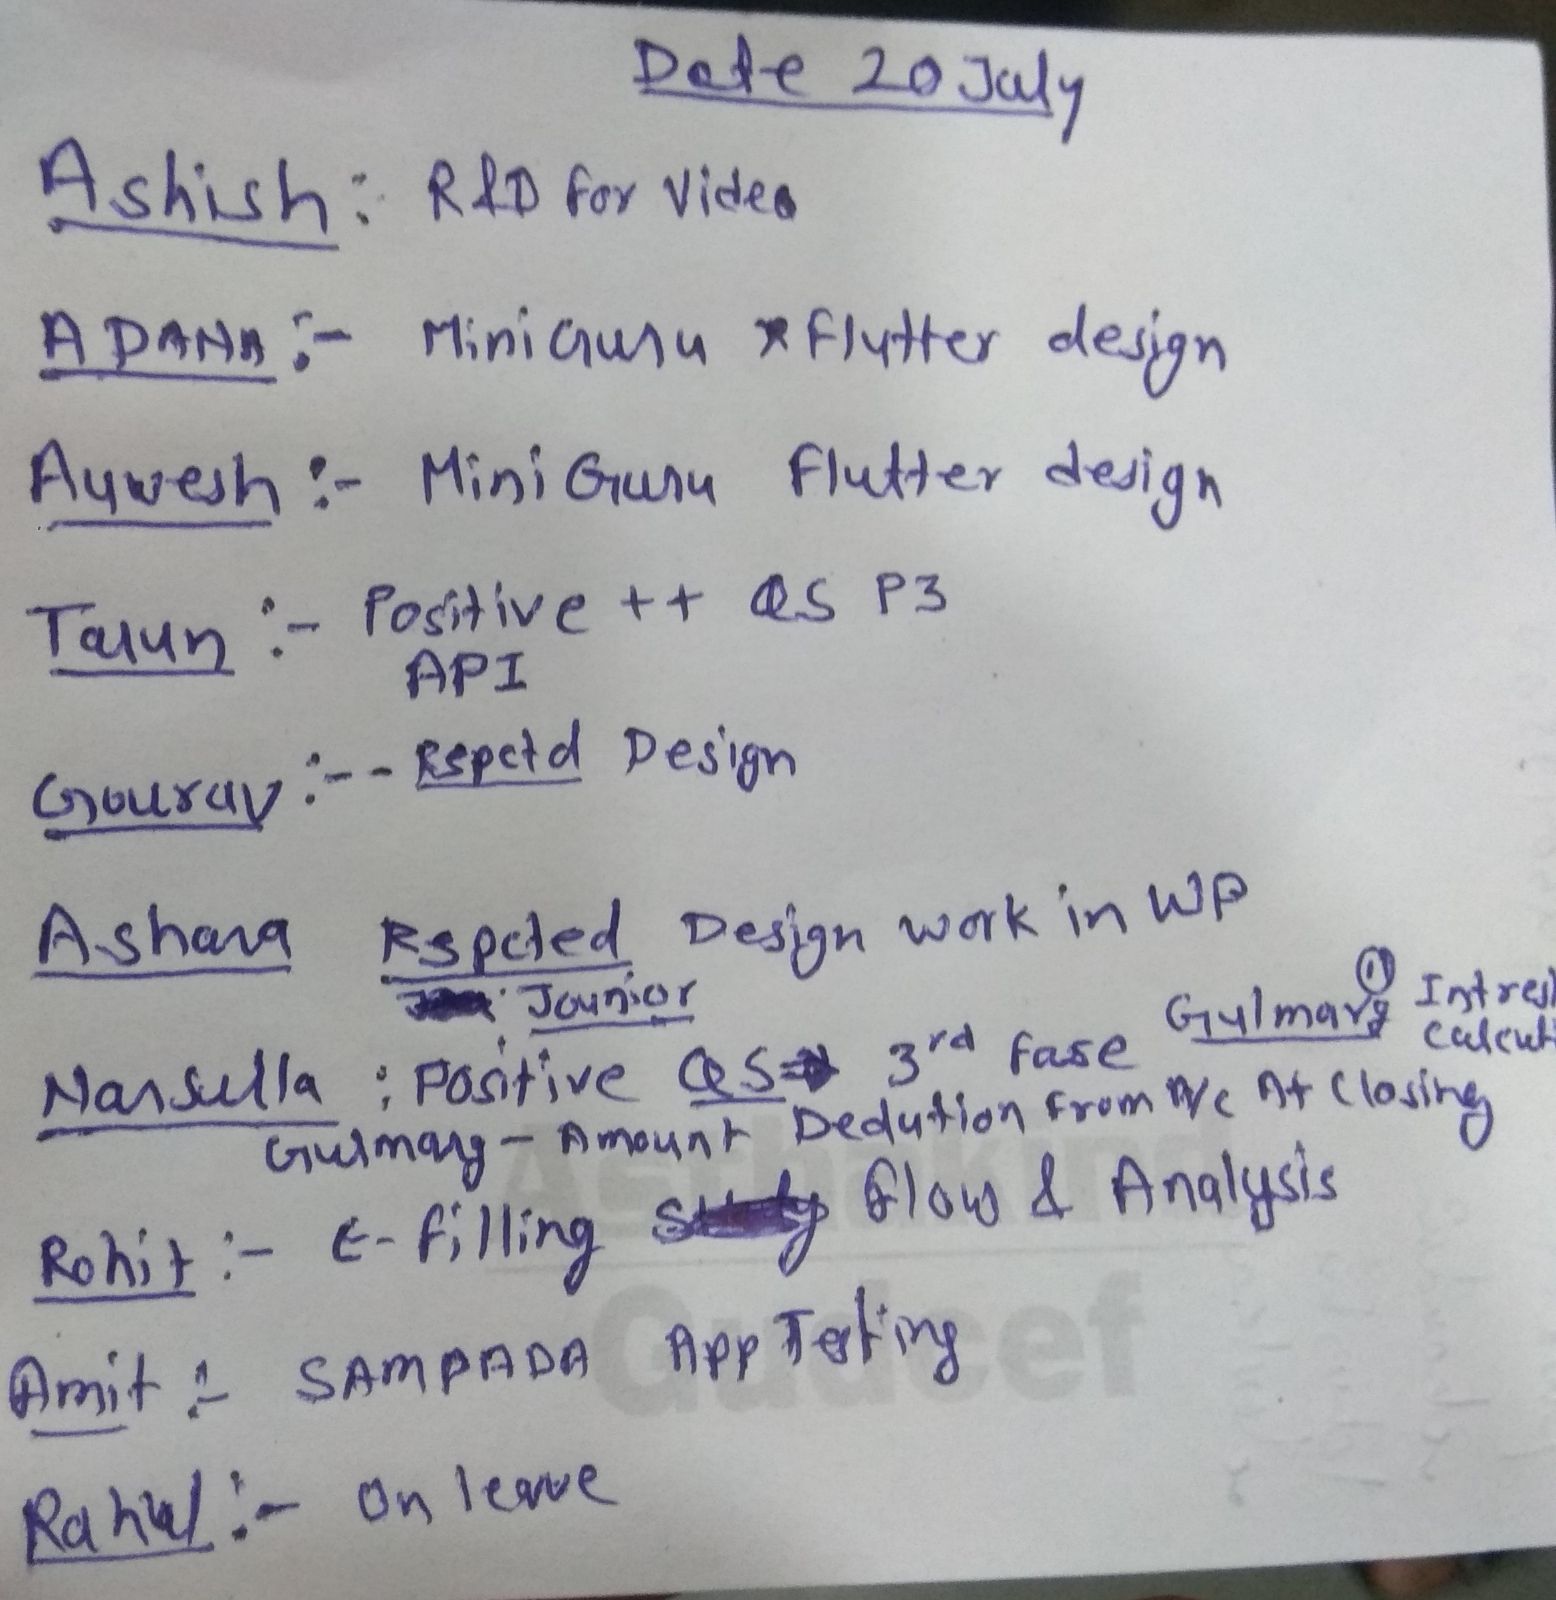 Date 20 July
Ashish : R&D for Video
ADANA :- MiniGuru Flutter design
Ayvesh :- Mini Guru Flutter design
Tarun :- Positive ++ QS P3
API
Gourav :-- Rspctd Design
Ashara Rspcted Design work in WP
Jounior
Narsulla : Positive QS 3rd fase Gulmarg ① Intrest
Calculti
Gulmarg - Amount Dedution From A/c At Closing
Rohit :- E-filling Flow & Analysis
Amit :- SAMPADA App Testing
Rahul :- On leave
Gudcef